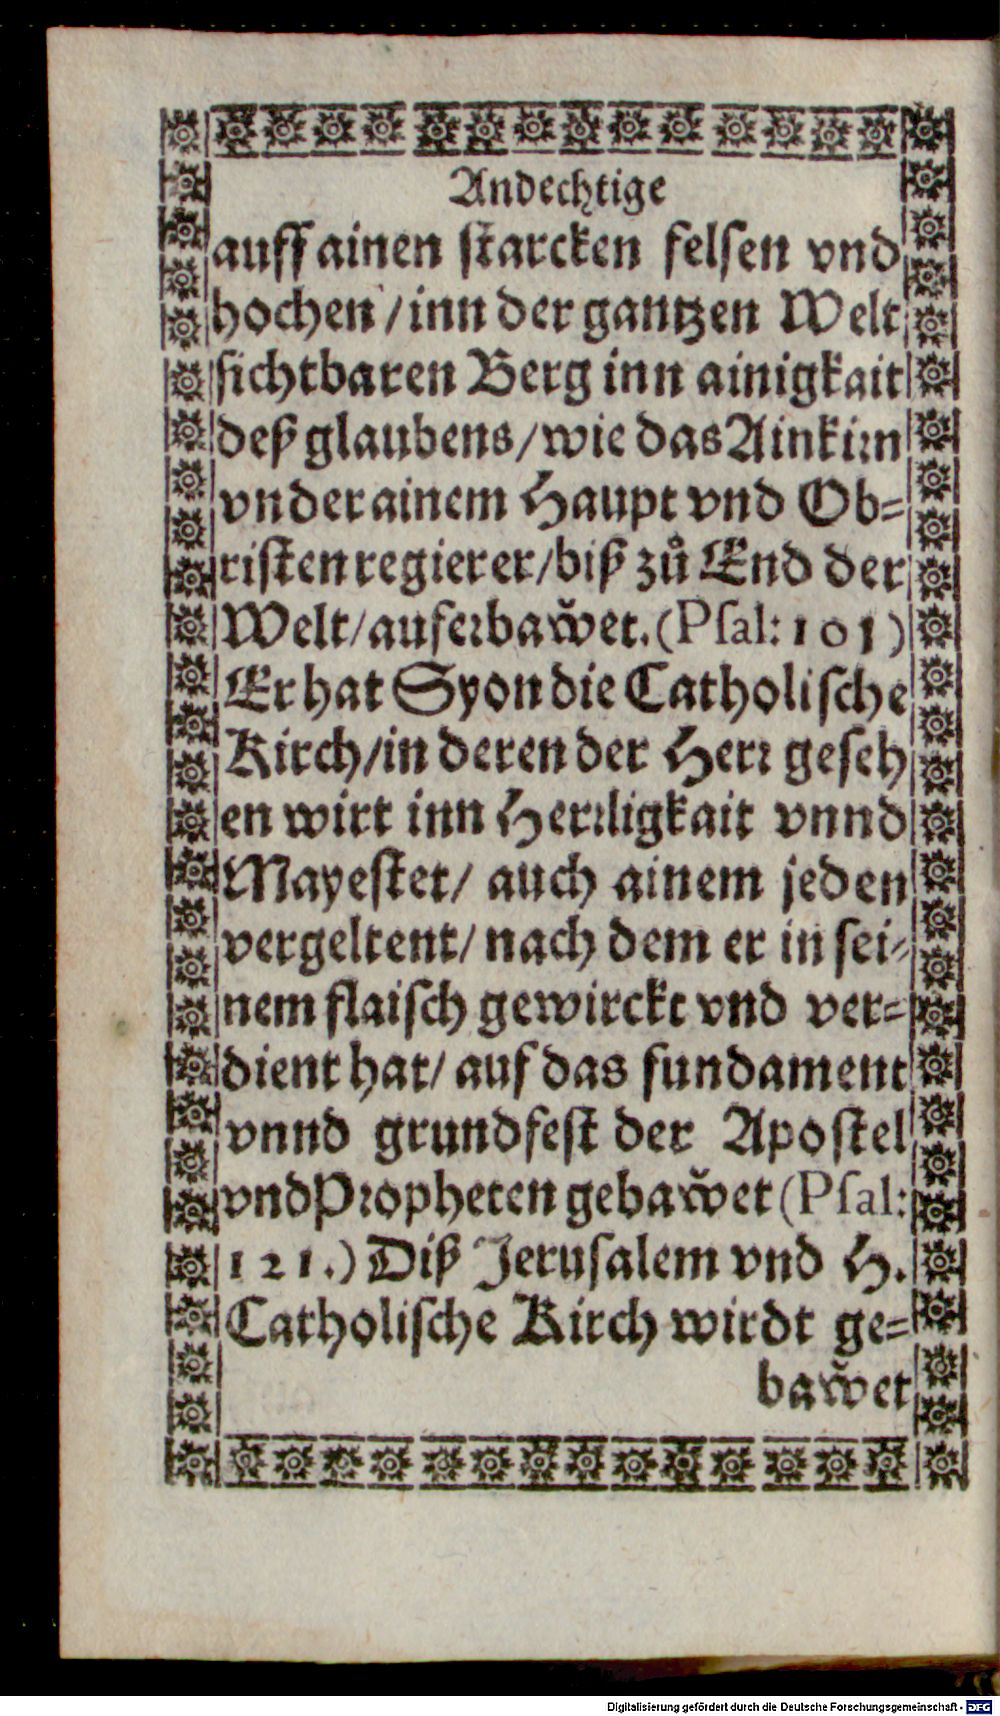 Andechtige
auff ainen starcken felsen vnd
hochen / inn der gantzen Welt
sichtbaren Berg inn ainigkait
deß glaubens / wie das Ainkirn
vnder ainem Haupt vnd Ob=
risten regierer / biß zů End der
Welt / auferbaw̆et. (Psal: 101)
Er hat Syon die Catholische
Kirch / in deren der Herr geseh
en wirt inn Herrligkait vnnd
Mayestet / auch ainem jeden
vergeltent / nach dem er in sei=
nem flaisch gewirckt vnd ver=
dient hat / auf das fundament
vnnd grundfest der Apostel
vnd Propheten gebaw̆et (Psal:
121.) Diß Jerusalem vnd H.
Catholische Kirch wirdt ge=
baw̆et
Digitalisierung gefördert durch die Deutsche Forschungsgemeinschaft - DFG